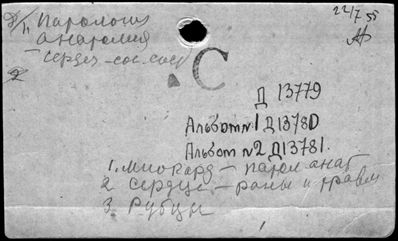 22/7 55
Патология
анатомия
сердеч–сос.
С
Д 13779
Альбом №1 Д13780
Альбом №2 Д13781.
1. Миокард – патол анат
2 Сердце – раны и травм
3. Рубцы